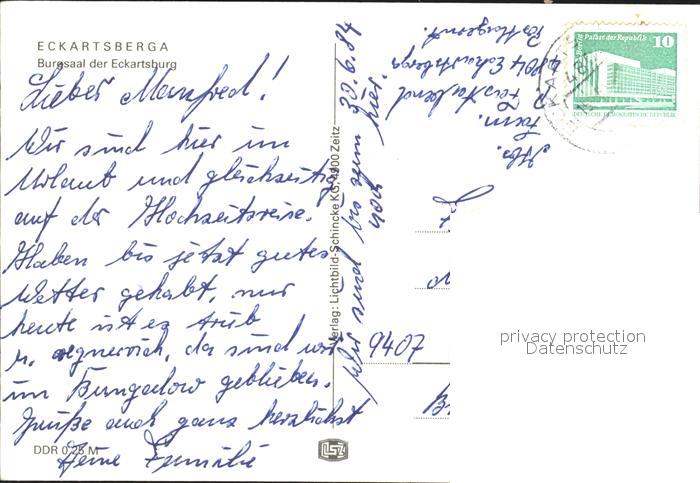 ECKARTSBERGA
Burgsaal der Eckartsburg
Lieber Manfred!
Wir sind hier im
Urlaub und gleichzeitig
auf der Hochzeitsreise.
Haben bis jetzt gutes
Wetter gehabt, nur
heute ist es trüb
u. regnerisch, da sind wir
im Bungalow geblieben.
Grüße auch ganz herzlichst
Deine Familie
DDR 0,25 M
Verlag: Lichtbild-Schincke KG, 4900 Zeitz
Wir sind bis zum 30.6.84
noch hier.
Abs.
Fam.
4804 Eckartsberga
Berlin Palast der Republik 10
DEUTSCHE DEMOKRATISCHE REPUBLIK
9407
privacy protection
Datenschutz